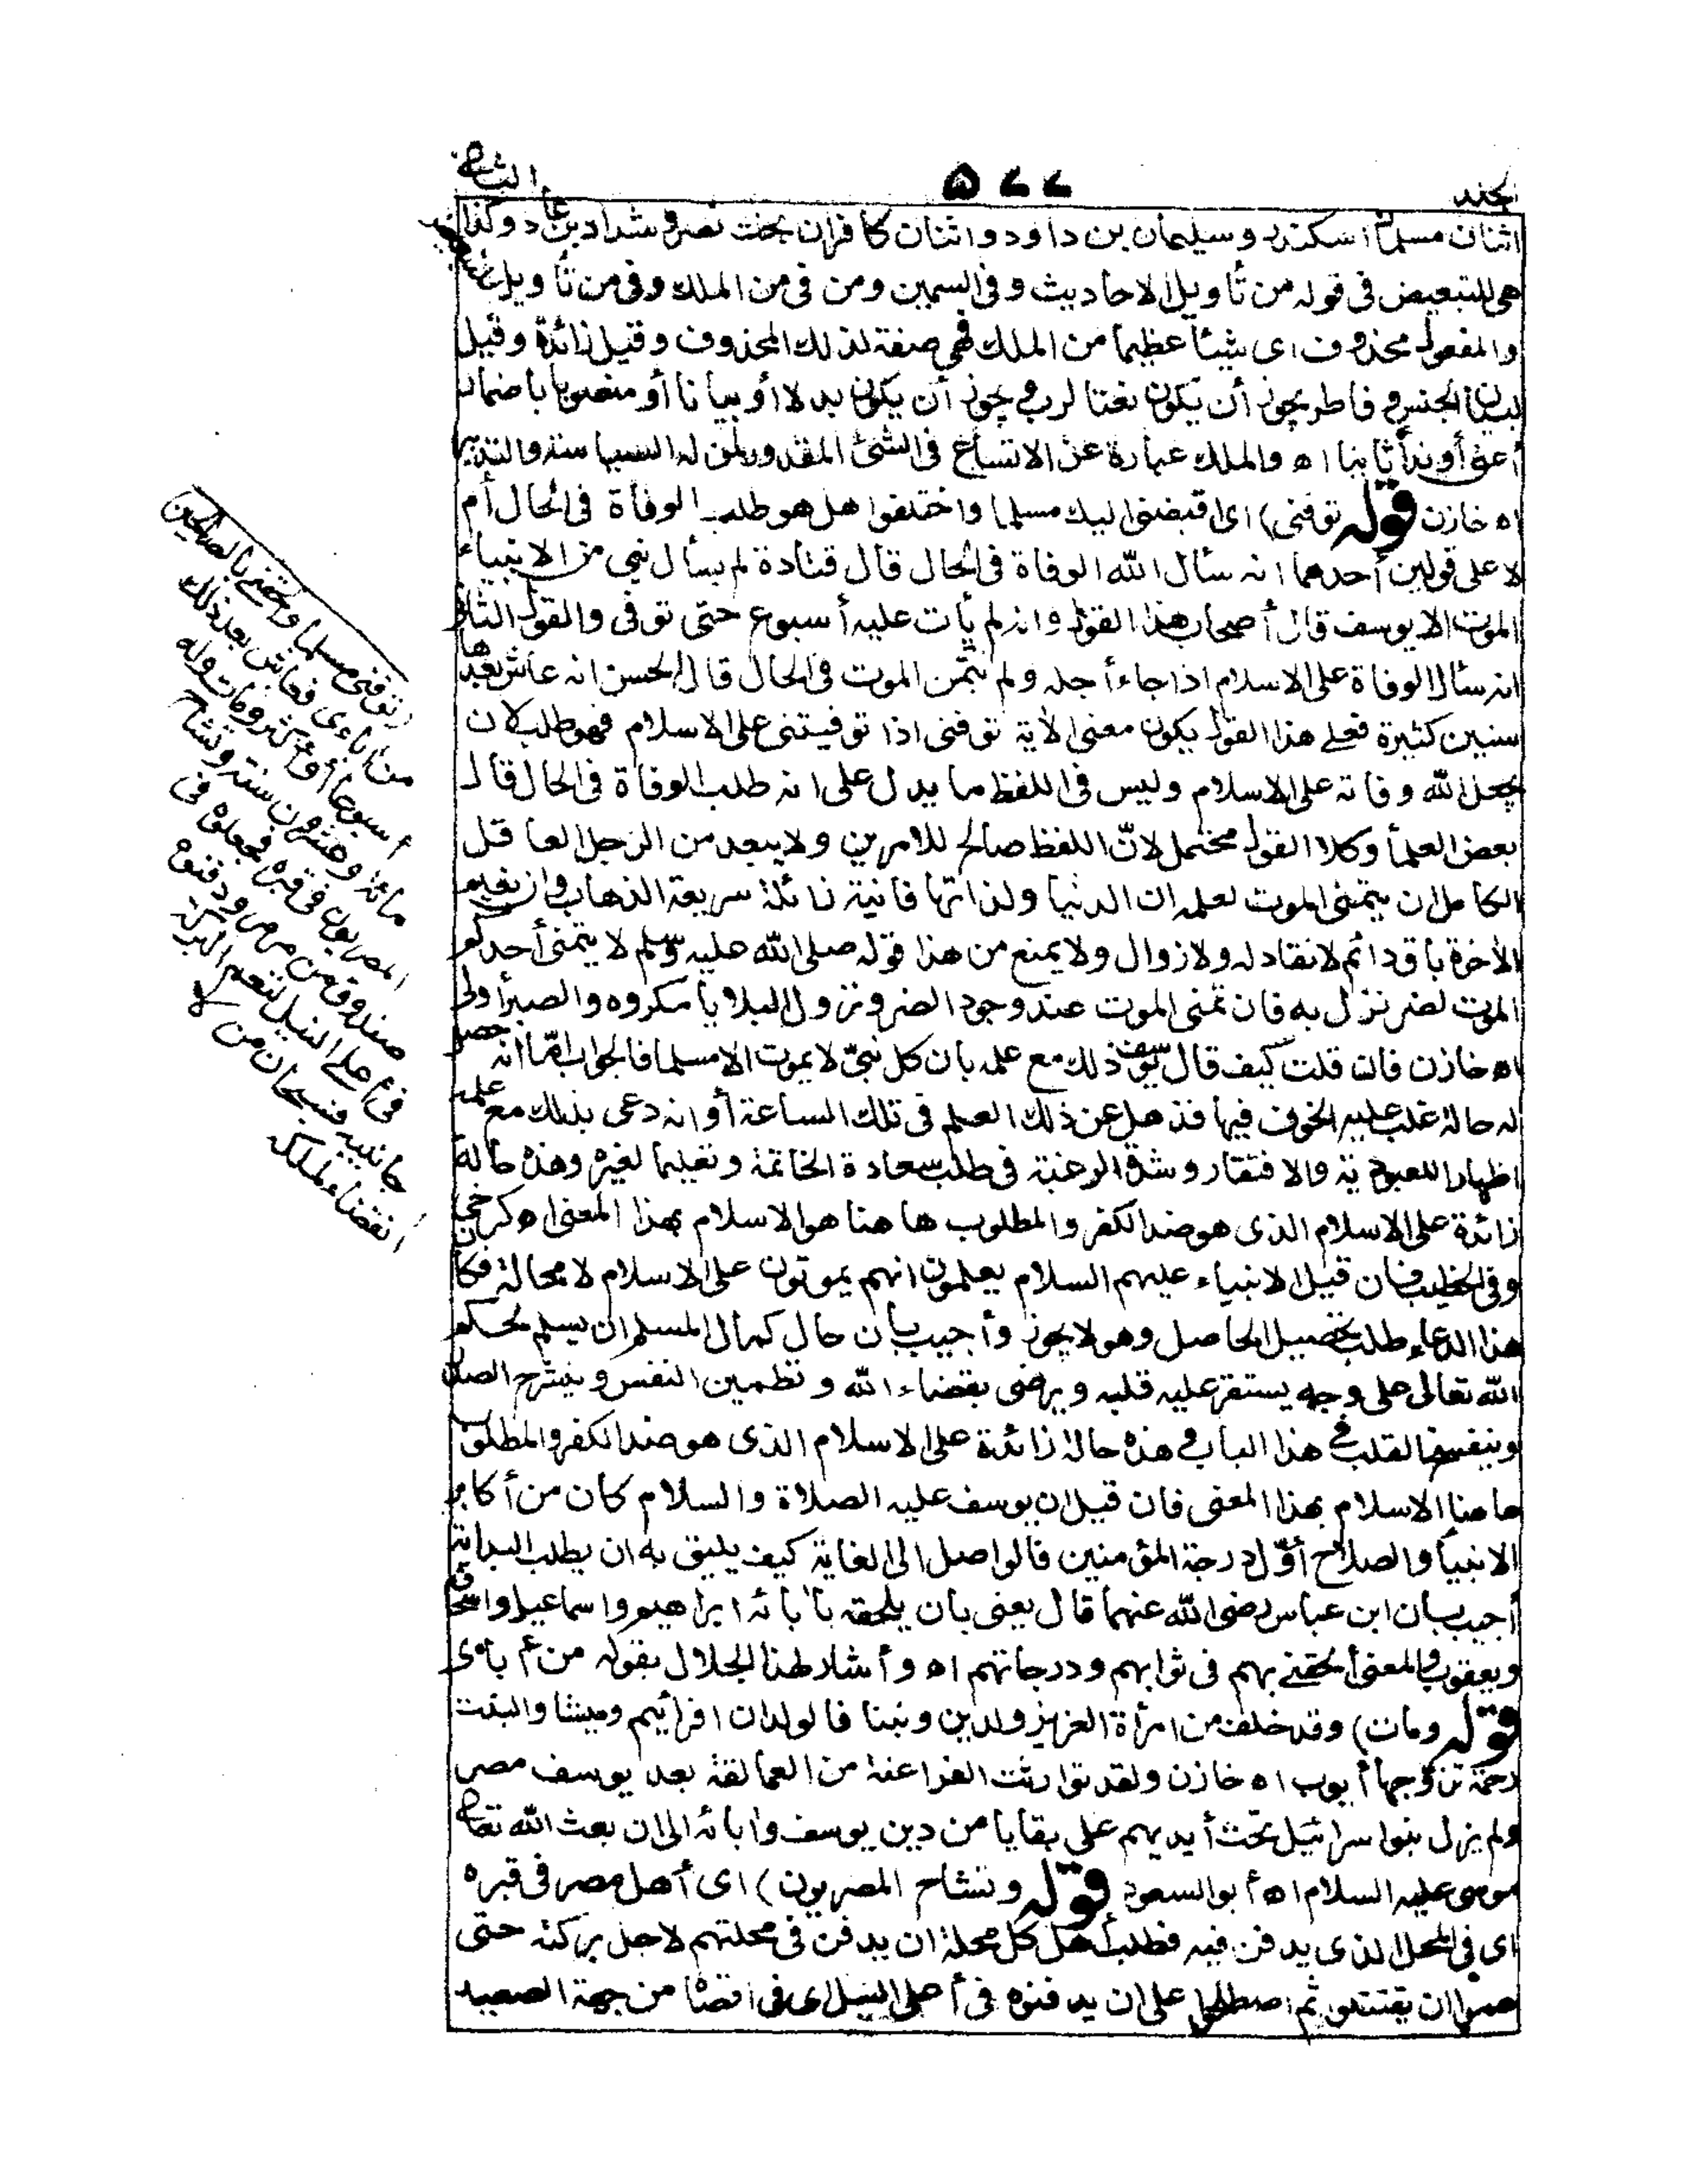 الجلد ٥٧٧ الثانى
اثنان مسلمان اسكندر وسليمان بن داود واثنان كافران بخت نصر وشداد بن عاد وكذا
هى للتبعيض فى قوله من تأويل الاحاديث وفى السمين ومن فى من الملك وفى من تأويل للتبعيض
والمفعول محذوف اى شيئا عظيما من الملك فهى صفة لذلك المحذوف وقيل زائدة وقيل
لبيان الجنس وفاطر يجوز أن يكون نعتا لرب ويجوز أن يكون بدلا أو بيانا أو منصوبا باضمار
أعنى أو نداء ثانيا اه والملك عبارة عن الاتساع فى الشئ المقدور لمن له السياسة والتدبير
اه خازن قوله توفنى) اى اقبضنى اليك مسلما واختلفوا هل هو طلب الوفاة فى الحال أم
لا على قولين أحدهما انه سأل الله الوفاة فى الحال قال قتادة لم يسأل نبى من الانبياء
الموت الا يوسف قال أصحاب هذا القول وانه لم يأت عليه أسبوع حتى توفى والقول الثانى
انه سأل الوفاة على الاسلام اذا جاء أجله ولم يتمن الموت فى الحال قال الحسن انه عاش بعدها
سنين كثيرة فعلى هذا القول يكون معنى الآية توفنى اذا توفيتنى على الاسلام فهو طلب لان
يجعل الله وفاته على الاسلام وليس فى اللفظ ما يدل على انه طلب الوفاة فى الحال قال
بعض العلماء وكلا القول محتمل لانّ اللفظ صالح للامرين ولا يبعد من الرجل العاقل
الكامل ان يتمنى الموت لعلمه ان الدنيا ولذاتها فانية زائلة سريعة الذهاب وان نعيم
الآخرة باق دائم لا نفاد له ولا زوال ولا يمنع من هذا قوله صلى الله عليه وسلم لا يتمنى أحدكم
الموت لضر نزل به فان تمنى الموت عند وجود الضر ونزول البلايا مكروه والصبر أولى
اه خازن فان قلت كيف قال يوسف ذلك مع علمه بان كل نبىّ لا يموت الا مسلما فالجواب امّا انه حصل
له حالة غلب عليه الخوف فيها فذهل عن ذلك العلم فى تلك الساعة أو انه دعى بذلك مع علمه
اظهارا للعبودية والافتقار وشدة الرغبة فى طلب سعادة الخاتمة وتعليما لغيره وهذه حالة
زائدة على الاسلام الذى هو ضد الكفر والمطلوب ها هنا هو الاسلام بهذا المعنى اه كرخى
وفى الخطيب فان قيل الانبياء عليهم السلام يعلمون انهم يموتون على الاسلام لا محالة فكان
هذا الدعاء طلب تحصيل الحاصل وهو لا يجوز وأجيب بأن حال كمال المسلم ان يسلم لحكم
الله تعالى على وجه يستقر عليه قلبه ويرضى بقضاء الله وتطمين النفس وينشرح الصدر
وينفسخ القلب فى هذا الباب وهذه حالة زائدة على الاسلام الذى هو ضد الكفر والمطلوب
هاهنا الاسلام بهذا المعنى فان قيل ان يوسف عليه الصلاة والسلام كان من أكابر
الانبياء والصلاح أوّل درجة المؤمنين فالواصل الى الغاية كيف يليق به ان يطلب البداية
أجيب بان ابن عباس رضى الله عنهما قال يعنى بان يلحقه بآبائه ابراهيم واسماعيل واسحاق
ويعقوب والمعنى ألحقنى بهم فى ثوابهم ودرجاتهم اه وأشار لهذا الجلال بقوله من آباءى
قوله ومات) وقد خلف من امرأة العزيز ولدين وبنتا فالولدان افرائيم وميشا والبنت
رحمة تزوّجها أيوب اه خازن ولقد توارثت الفراعنة من العمالقة بعد يوسف مصر
ولم يزل بنوا سرائيل تحت أيديهم على بقايا من دين يوسف وآبائه الى ان بعث الله تعالى
موسى عليه السلام اه أبو السعود قوله وتشاح المصريون) اى أهل مصر فى قبره
اى فى المحل الذى يدفن فيه فطلب أهل كل محلة ان يدفن فى محلتهم لاجل بركته حتى
هموا ان يقتتلوا ثم اصطلحوا على ان يدفنوه فى أعلى النيل اى فى اقصاه من جهة الصعيد
توفنى مسلما وألحقنى بالصالحين
من آباءى فعاش بعد ذلك
أسبوعا أو أكثر ومات وله
مائة وعشرون سنة وتشاح
المصريون فى قبره فجعلوه فى
صندوق من مرمر ودفنوه
فى أعلى النيل لتعم البركة
جانبيه فسبحان من لا
انقضاء لملكه